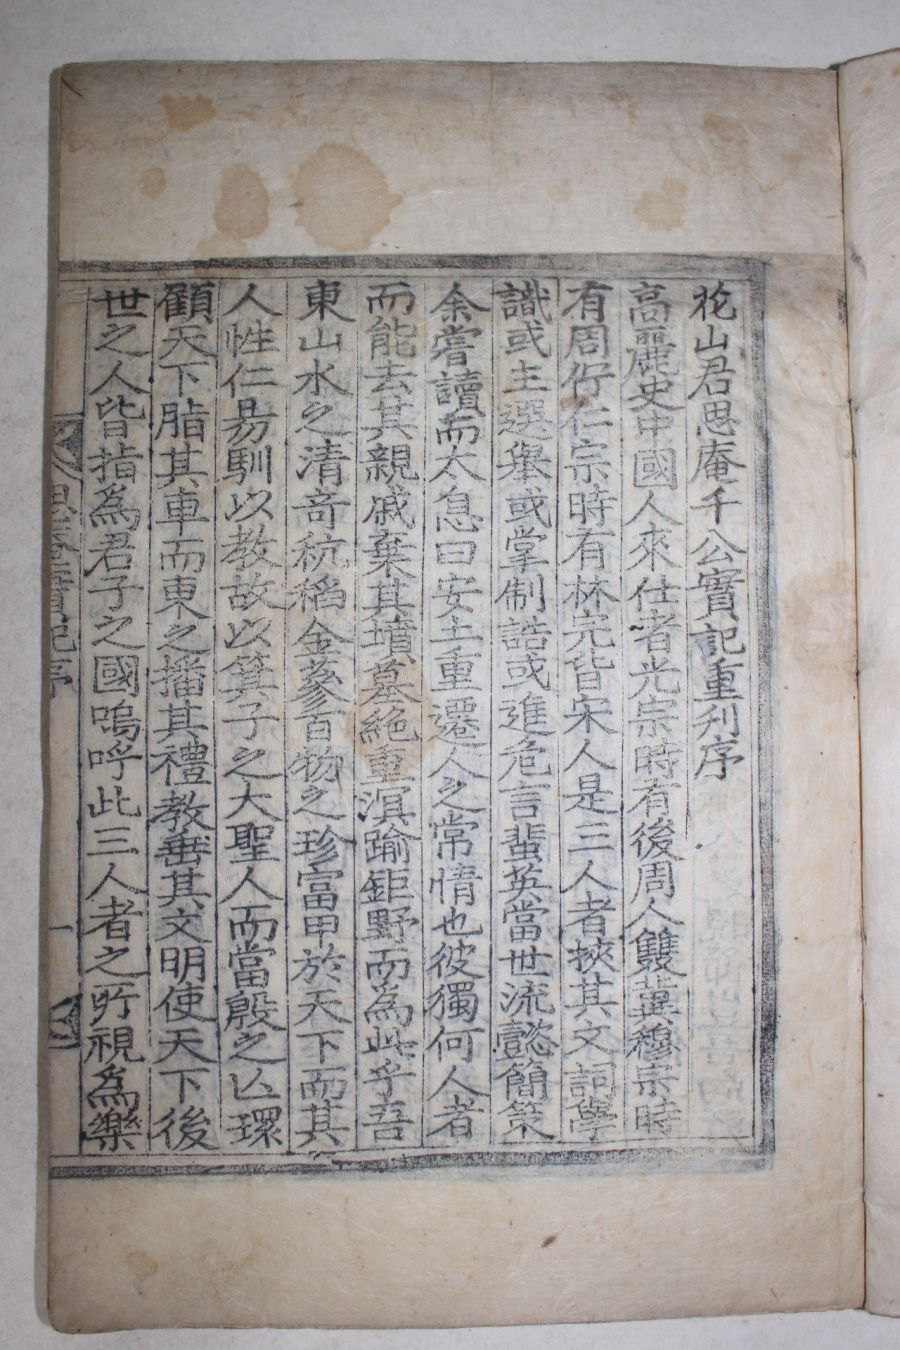 花山君思庵千公實記重刋序
高麗史中國人來仕者光宗時有後周人雙冀穆宗時
有周佇仁宗時有林完皆宋人是三人者挾其文詞學
識或主選擧或掌制誥或進危言蜚英當世流懿簡策
余嘗讀而太息曰安土重遷人之常情也彼獨何人者
而能去其親戚棄其墳墓絶重溟踰鉅野而爲此乎吾
東山水之清奇秔稻金蔘百物之珍富甲於天下而其
人性仁易馴以教故以箕子之大聖人而當殷之亾環
顧天下脂其車而東之播其禮教垂其文明使天下後
世之人皆指爲君子之國嗚呼此三人者之所視爲樂
思庵實記序
一